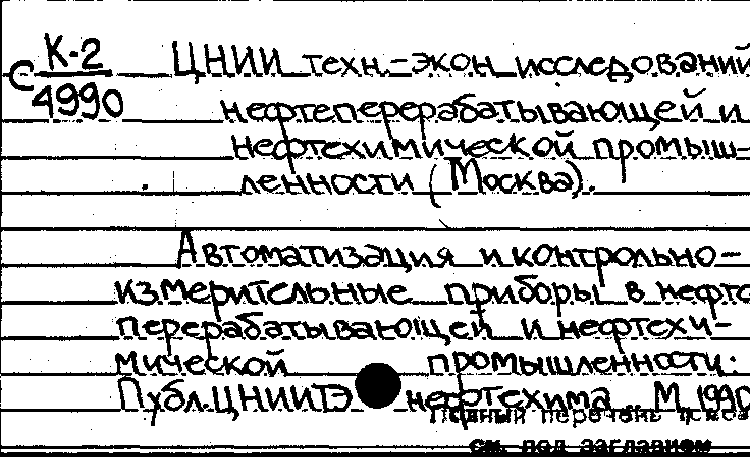 С К-2 ЦНИИ техн.-экон исследований
4990 нефтеперерабатывающей и
нефтехимической промыш-
ленности (Москва).
Автоматизация и контрольно-
измерительные приборы в нефте
перерабатывающей и нефтехи-
мической промышленности:
Публ. ЦНИИТЭ нефтехима М 1990
Полный перечень
см. под заглавием